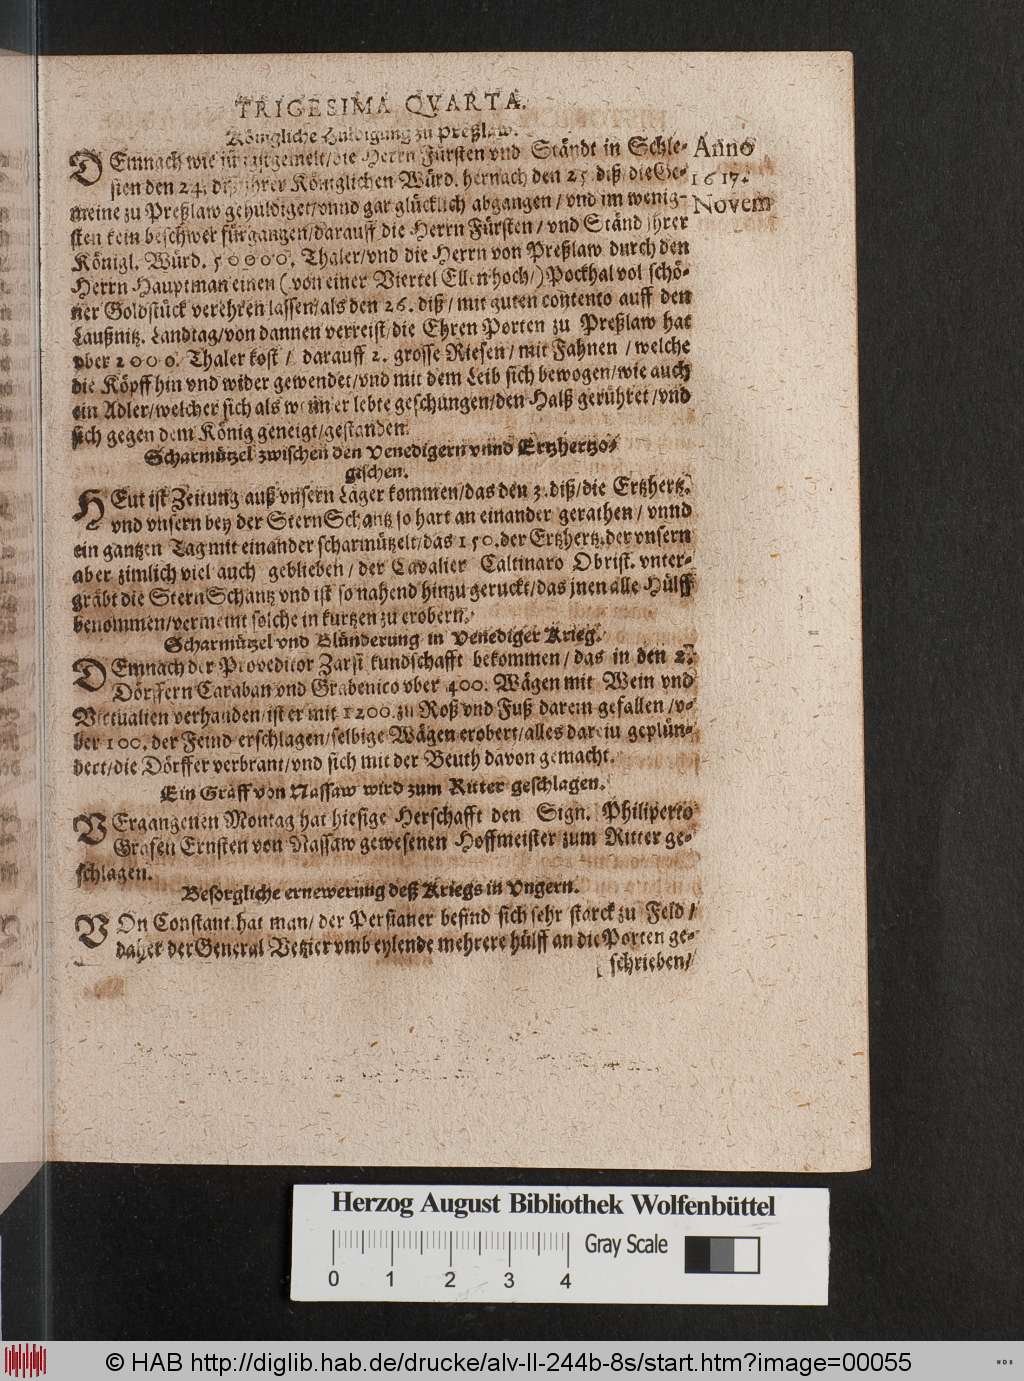 TRIGESIMA QVARTA.
Königliche Huldigung zu Preßlaw.
DEmnach wie jüngst gemelt/die Herrn Fürsten vnd Ständt in Schle-
sien den 24. diß jhrer Königlichen Würd. hernach den 25. diß/die Ge-
meine zu Preßlaw gehuldiget/vnnd gar glücklich abgangen/vnd im wenig-
sten kein beschwer fürgangen/darauff die Herrn Fürsten/vnd Ständ jhrer
Königl. Würd. 50000. Thaler/vnd die Herrn von Preßlaw durch den
Herrn Hauptman einen (von einer Viertel Ellen hoch/) Pockhal vol schö-
ner Goldstück verehren lassen/als den 26. diß/mit guten contento auff den
Laußnitz. Landtag/von dannen verreist/die Ehren Porten zu Preßlaw hat
vber 2000. Thaler kost/ darauff 2. grosse Riesen/mit Fahnen/welche
die Köpff hin vnd wider gewendet/vnd mit dem Leib sich bewogen/wie auch
ein Adler/welcher sich als wenn er lebte geschungen/den Halß gerühret/vnd
sich gegen dem König geneigt/gestanden.
Anno
1617.
Novem
Scharmützel zwischen den Venedigern vnnd Ertzhertzo-
gischen.
HEut ist Zeitung auß vnsern Läger kommen/das den 3. diß/die Ertzhertz.
vnd vnsern bey der SternSchantz so hart an einander gerathen/vnnd
ein gantzen Tag mit einander scharmützelt/das 150. der Ertzhertz. der vnsern
aber zimlich viel auch geblieben/der Cavalier Caltinaro Obrist. vnter-
gräbt die SternSchantz vnd ist so nahend hinzu geruckt/das jnen alle Hülff
benommen/vermeint solche in kurtzen zu erobern.
Scharmützel vnd Blünderung in Venediger Krieg.
DEmnach der Proveditor Zarsi kundschafft bekommen/das in den 2.
Dörffern Caraban vnd Grabenico vber 400. Wägen mit Wein vnd
Victualien verhanden/ist er mit 1200. zu Roß vnd Fuß darein gefallen/v-
ber 100. der Feind erschlagen/selbige Wägen erobert/alles darein geplün-
dert/die Dörffer verbrant/vnd sich mit der Beuth davon gemacht.
Ein Graff von Nassaw wird zum Ritter geschlagen.
VErgangenen Montag hat hiesige Herschafft den Sign. Philiperto
Grafen Ernsten von Nassaw gewesenen Hoffmeister zum Ritter ge-
schlagen.
Besorgliche ernewerung deß Kriegs in Vngern.
VOn Constant. hat man/der Persianer befind sich sehr starck zu Feld/
daher der General Vetzier vmb eylende mehrere hülff an die Porten ge-
schrieben/
Herzog August Bibliothek Wolfenbüttel
Gray Scale
0 1 2 3 4
© HAB http://diglib.hab.de/drucke/alv-ll-244b-8s/start.htm?image=00055